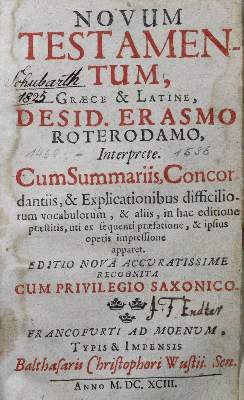 NOVUM
TESTAMEN-
TUM,
Schubarth
1825
GRÆCE & LATINE,
DESID. ERASMO
ROTERODAMO,
1450.- - 1536
Interprete.
Cum Summariis, Concor
dantiis, & Explicationibus difficilio-
rum vocabulorum, & aliis, in hac editione
præstitis, uti ex sequenti præfatione, & ipsius
operis impressione
apparet.
EDITIO NOVA ACCURATISSIME
RECOGNITA
CUM PRIVILEGIO SAXONICO.
J. F. Endter
FRANCOFURTI AD MOENUM,
TYPIS & IMPENSIS
Balthasaris Christophori Wustii. Sen.
ANNO M. DC. XCIII.